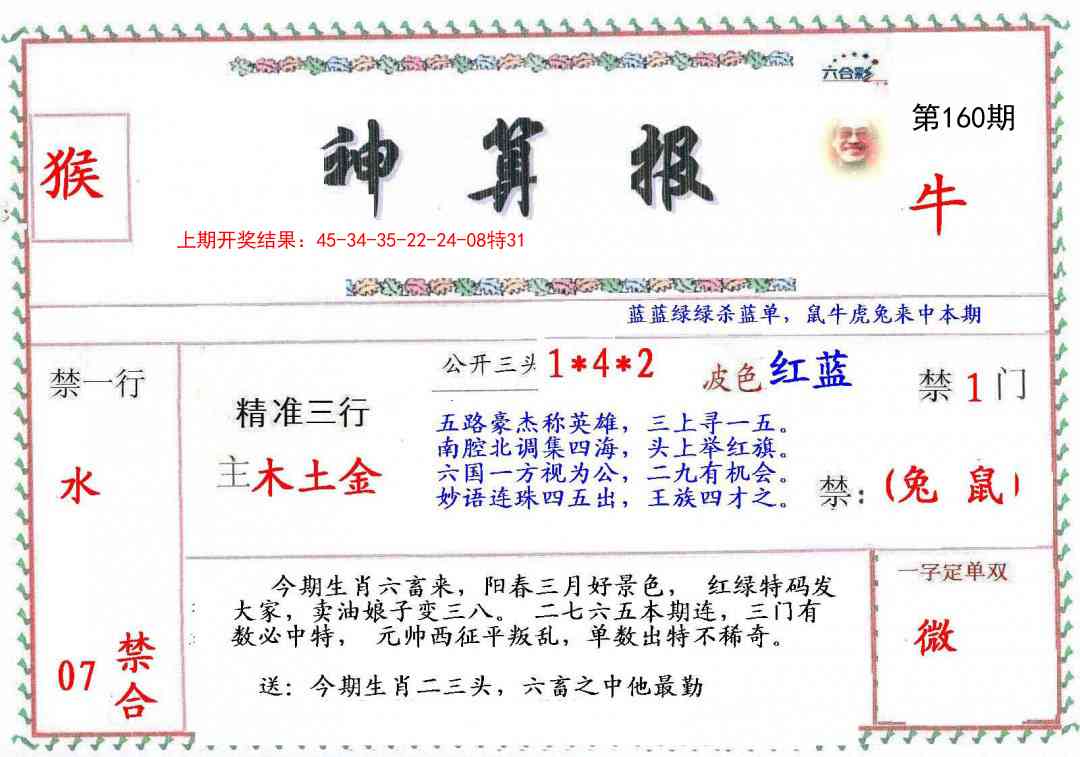 六合彩
第160期
猴
神算报
牛
上期开奖结果：45-34-35-22-24-08特31
蓝蓝绿绿杀蓝单，鼠牛虎兔来中本期
禁一行
水
07
禁合
精准三行
主木土金
公开三头1*4*2
波色红蓝
禁1门
五路豪杰称英雄，三上寻一五。
南腔北调集四海，头上举红旗。
六国一方视为公，二九有机会。
妙语连珠四五出，王族四才之。
禁：(兔 鼠)
今期生肖六畜来，阳春三月好景色， 红绿特码发
大家，卖油娘子变三八。 二七六五本期连，三门有
数必中特， 元帅西征平叛乱，单数出特不稀奇。
送：今期生肖二三头，六畜之中他最勤
一字定单双
微